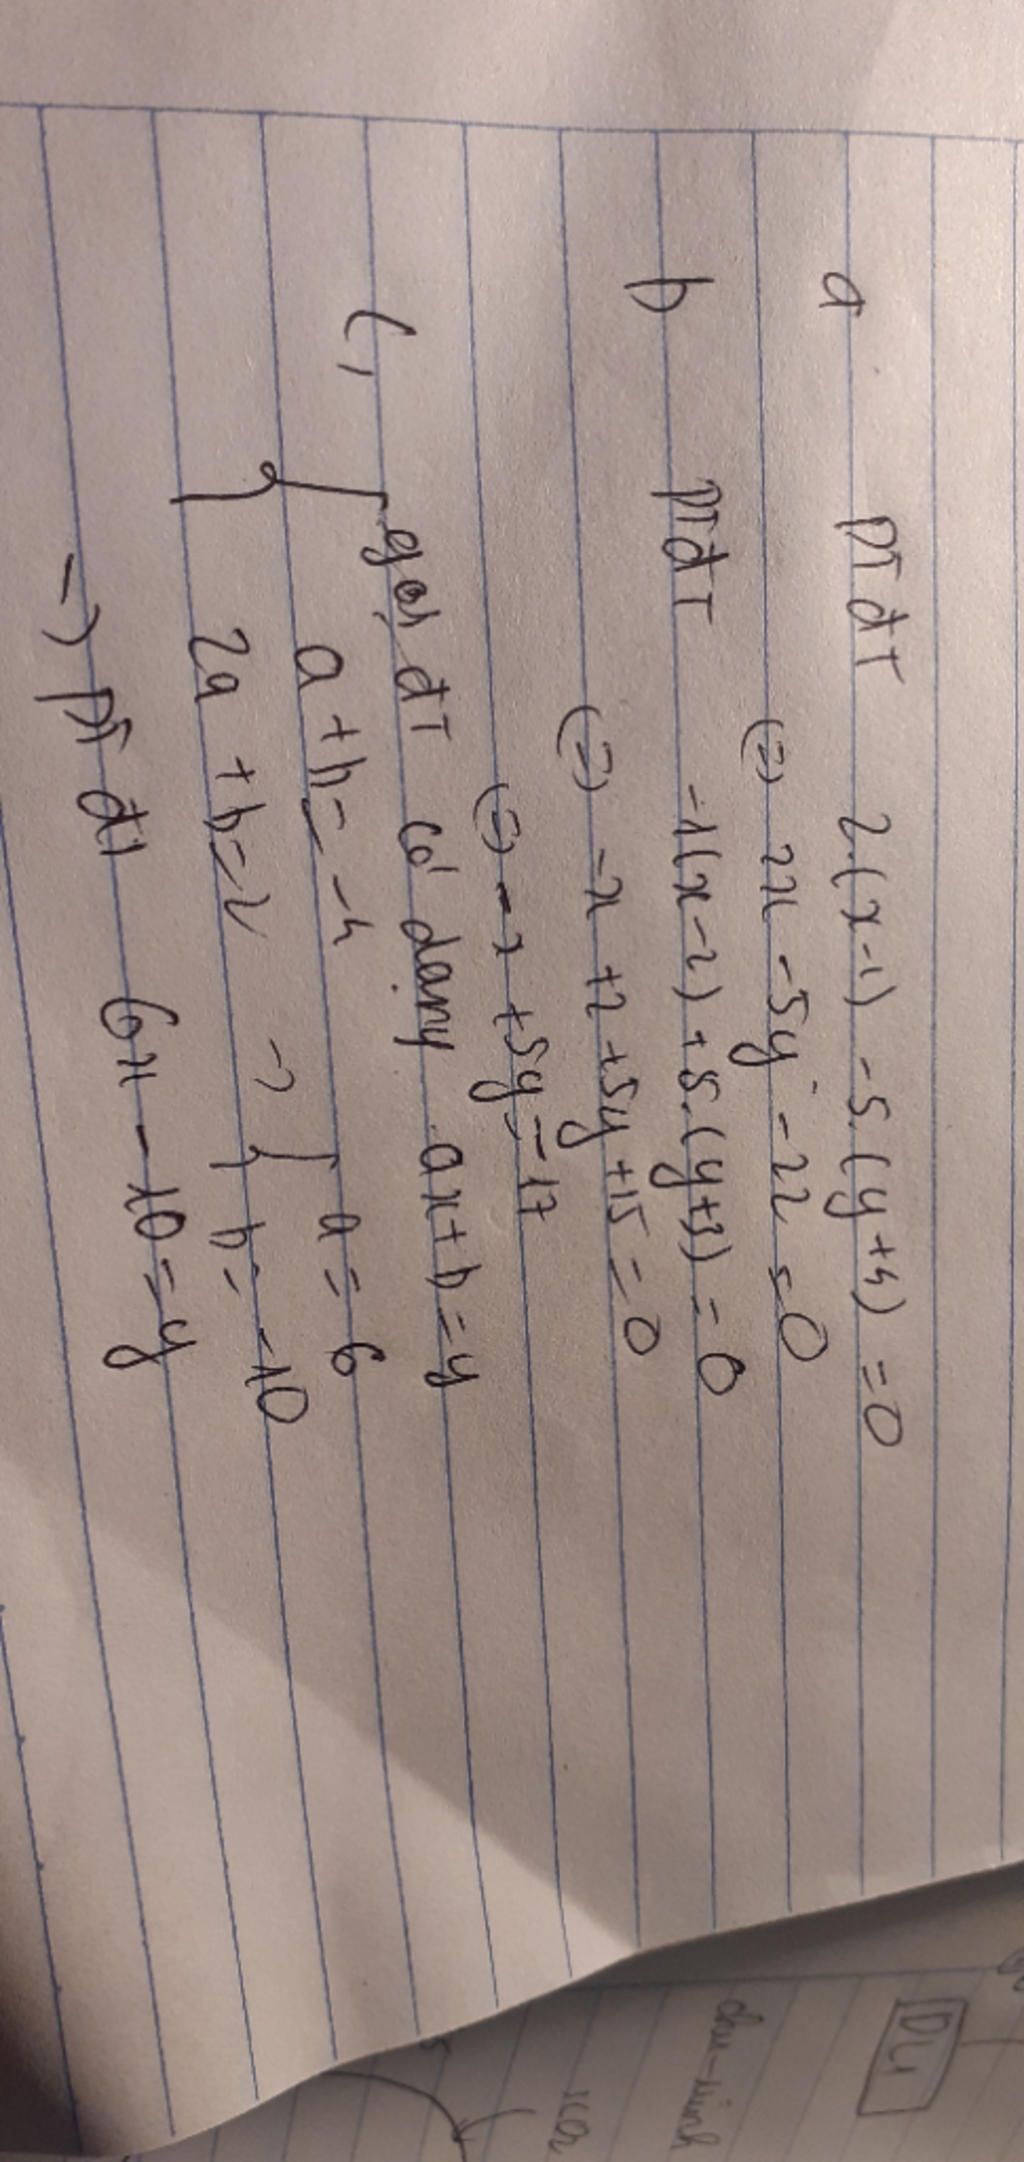 a ptđt 2.(x-1) -5.(y+4) =0
(=) 2x -5y -22 =0
b ptđt -1(x-2) +5.(y+3) = 0
(=) -x +2 +5y +15 = 0
(=) -x +5y = -17
c, gọi đt có dạng ax+b=y
{ a +b= -4
2a +b=2 -> { a = 6
b= -10
-> pt đt 6x -10=y
DL1